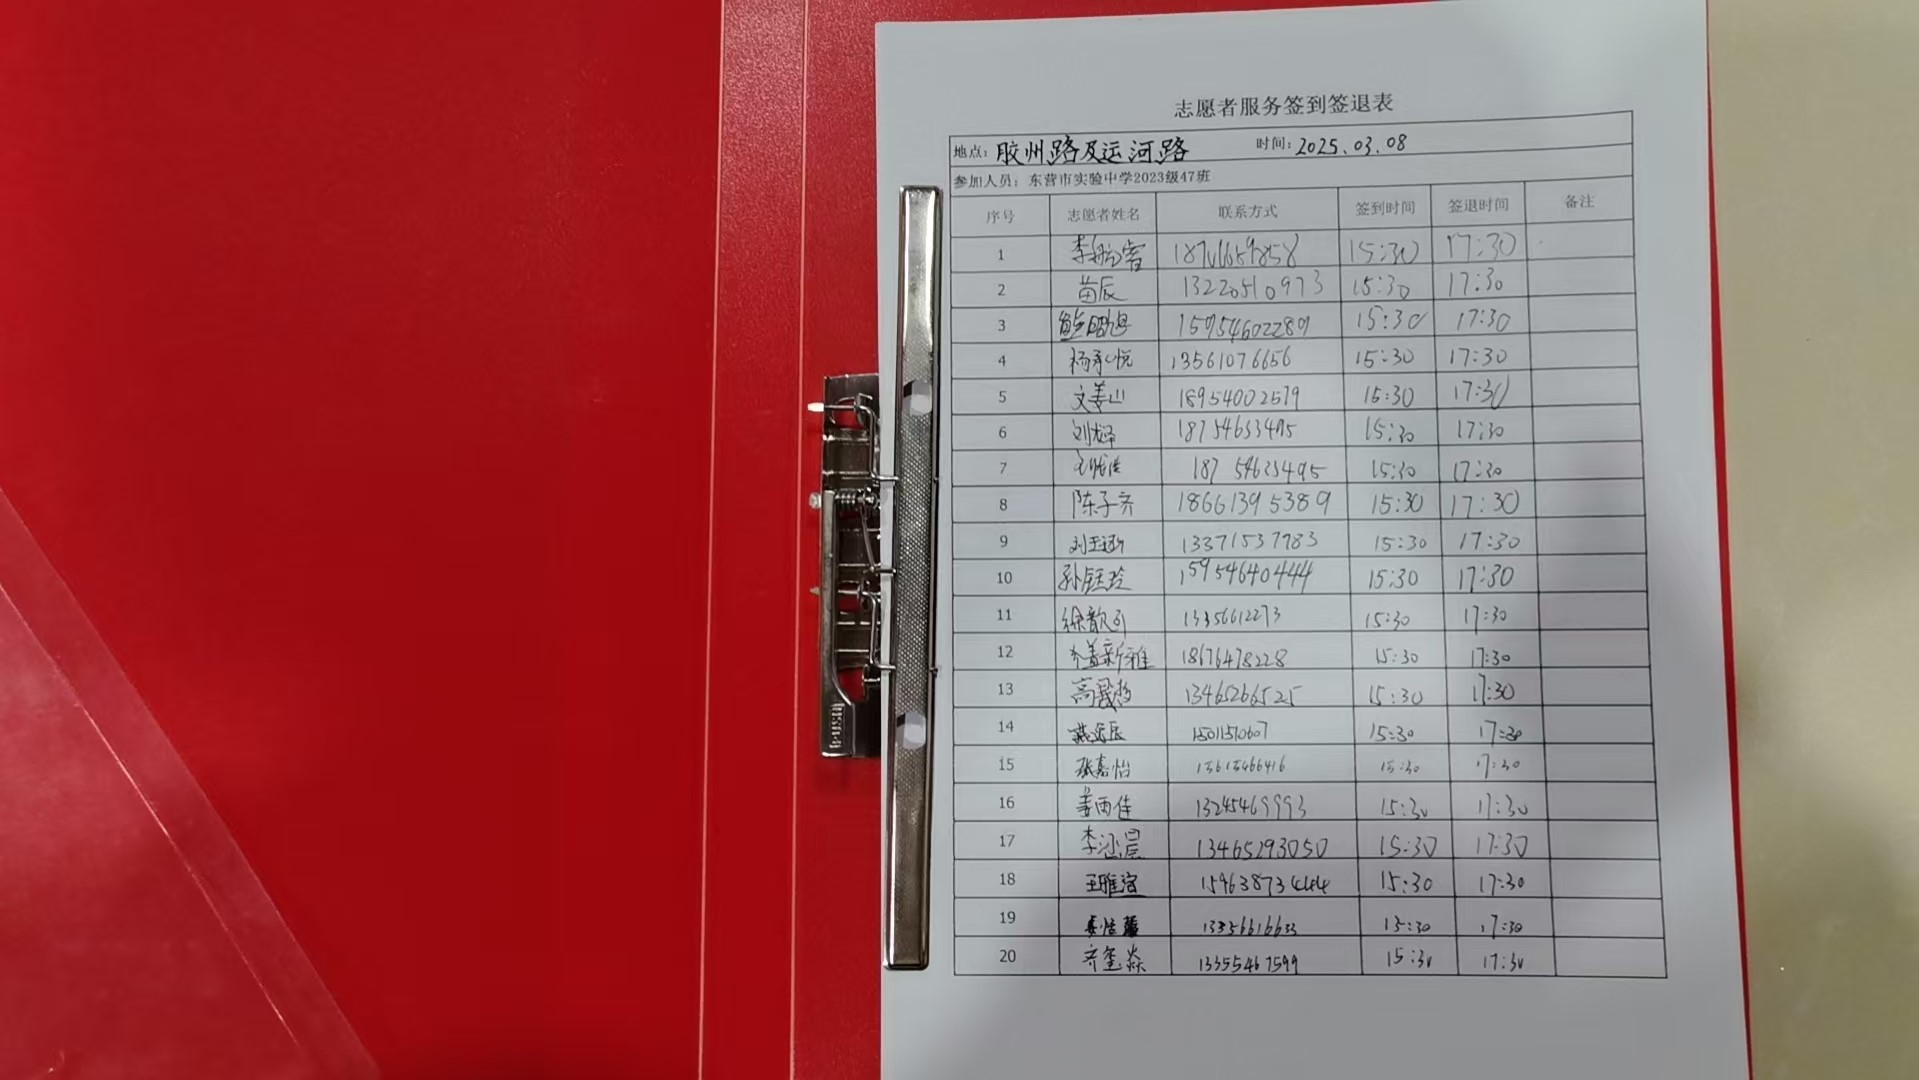 志愿者服务签到签退表
地点：胶州路及运河路 时间：2025.03.08
参加人员：东营市实验中学2023级47班
序号 志愿者姓名 联系方式 签到时间 签退时间 备注
1 15:30 17:30
2 苗辰 13220510973 15:30 17:30
3 15954602289 15:30 17:30
4 杨承悦 13561076656 15:30 17:30
5 文姜山 18954002579 15:30 17:30
6 18754633495 15:30 17:30
7 15:30 17:30
8 陈子齐 18661395389 15:30 17:30
9 刘玉涵 13371537783 15:30 17:30
10 15954640444 15:30 17:30
11 徐歆 13356612273 15:30 17:30
12 18676478228 15:30 17:30
13 高晟扬 13465266525 15:30 17:30
14 15011510607 15:30 17:30
15 张嘉怡 15615466416 15:30 17:30
16 姜雨佳 13245469993 15:30 17:30
17 李涵 13465293050 15:30 17:30
18 王雅 15963873444 15:30 17:30
19 13356616633 15:30 17:30
20 齐玺焱 13355467599 15:30 17:30